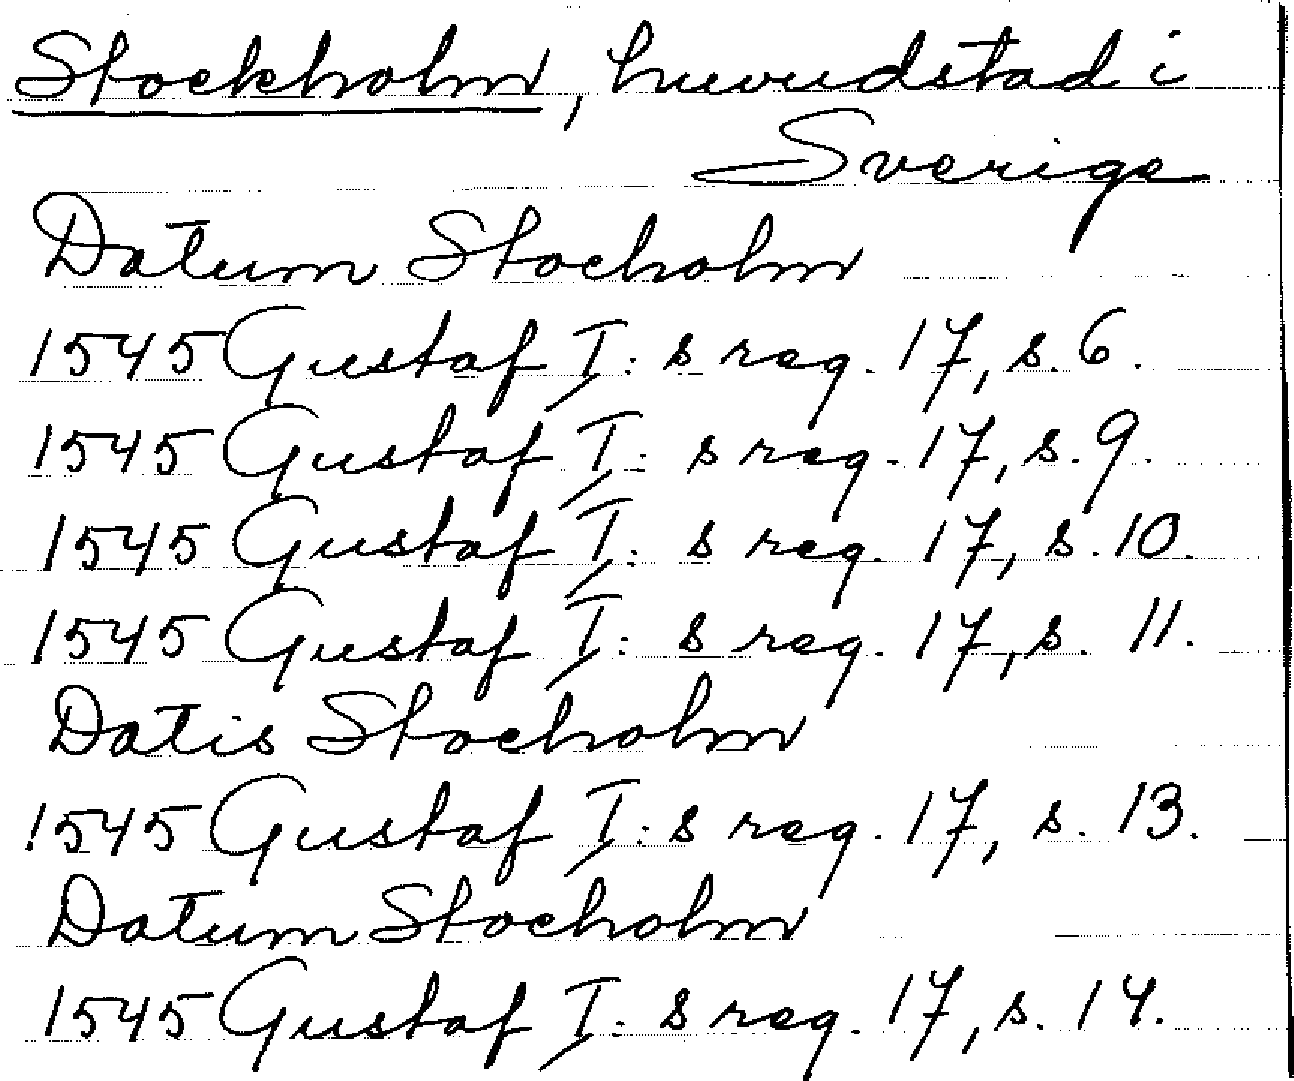 Stockholm, huvudstad i
Sverige
Datum Stocholm
1545 Gustaf I:s reg. 17, s. 6.
1545 Gustaf I:s reg. 17, s. 9.
1545 Gustaf I:s reg. 17, s. 10.
1545 Gustaf I:s reg. 17, s. 11.
Datis Stocholm
1545 Gustaf I:s reg. 17, s. 13.
Datum Stocholm
1545 Gustaf I:s reg. 17, s. 14.